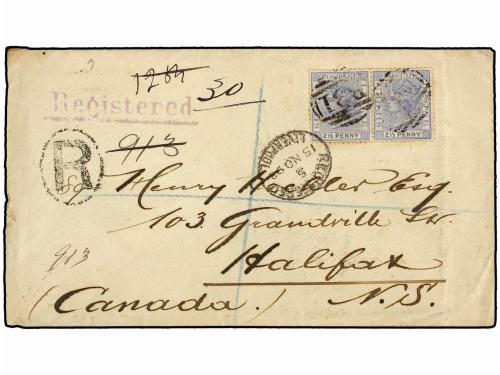 30
Registered
2½ PENNY 2½ PENNY
R
913
REGISTERED
LIVERPOOL
15 NO 9
Henry Esq.
103. Granville St.
Halifax
913
(Canada.) N.S.